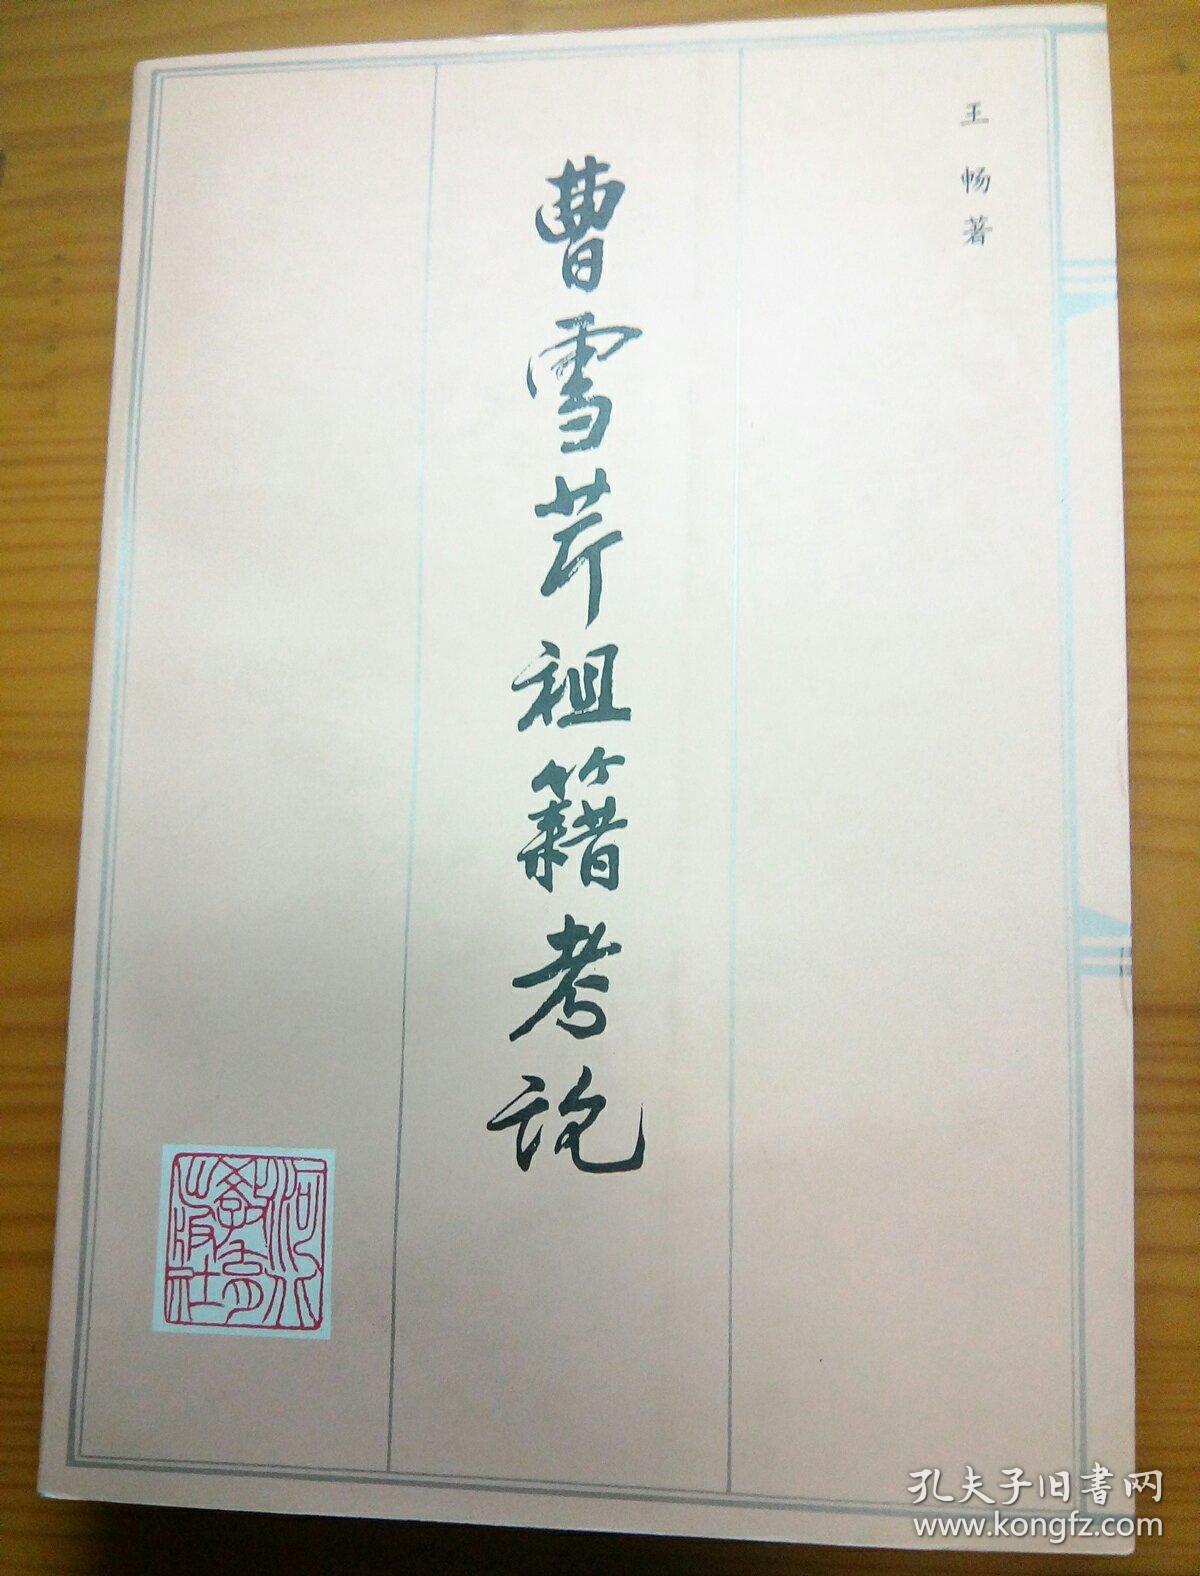 王畅著
曹雪芹祖籍考论
河北教育出版社
孔夫子旧书网
www.kongfz.com